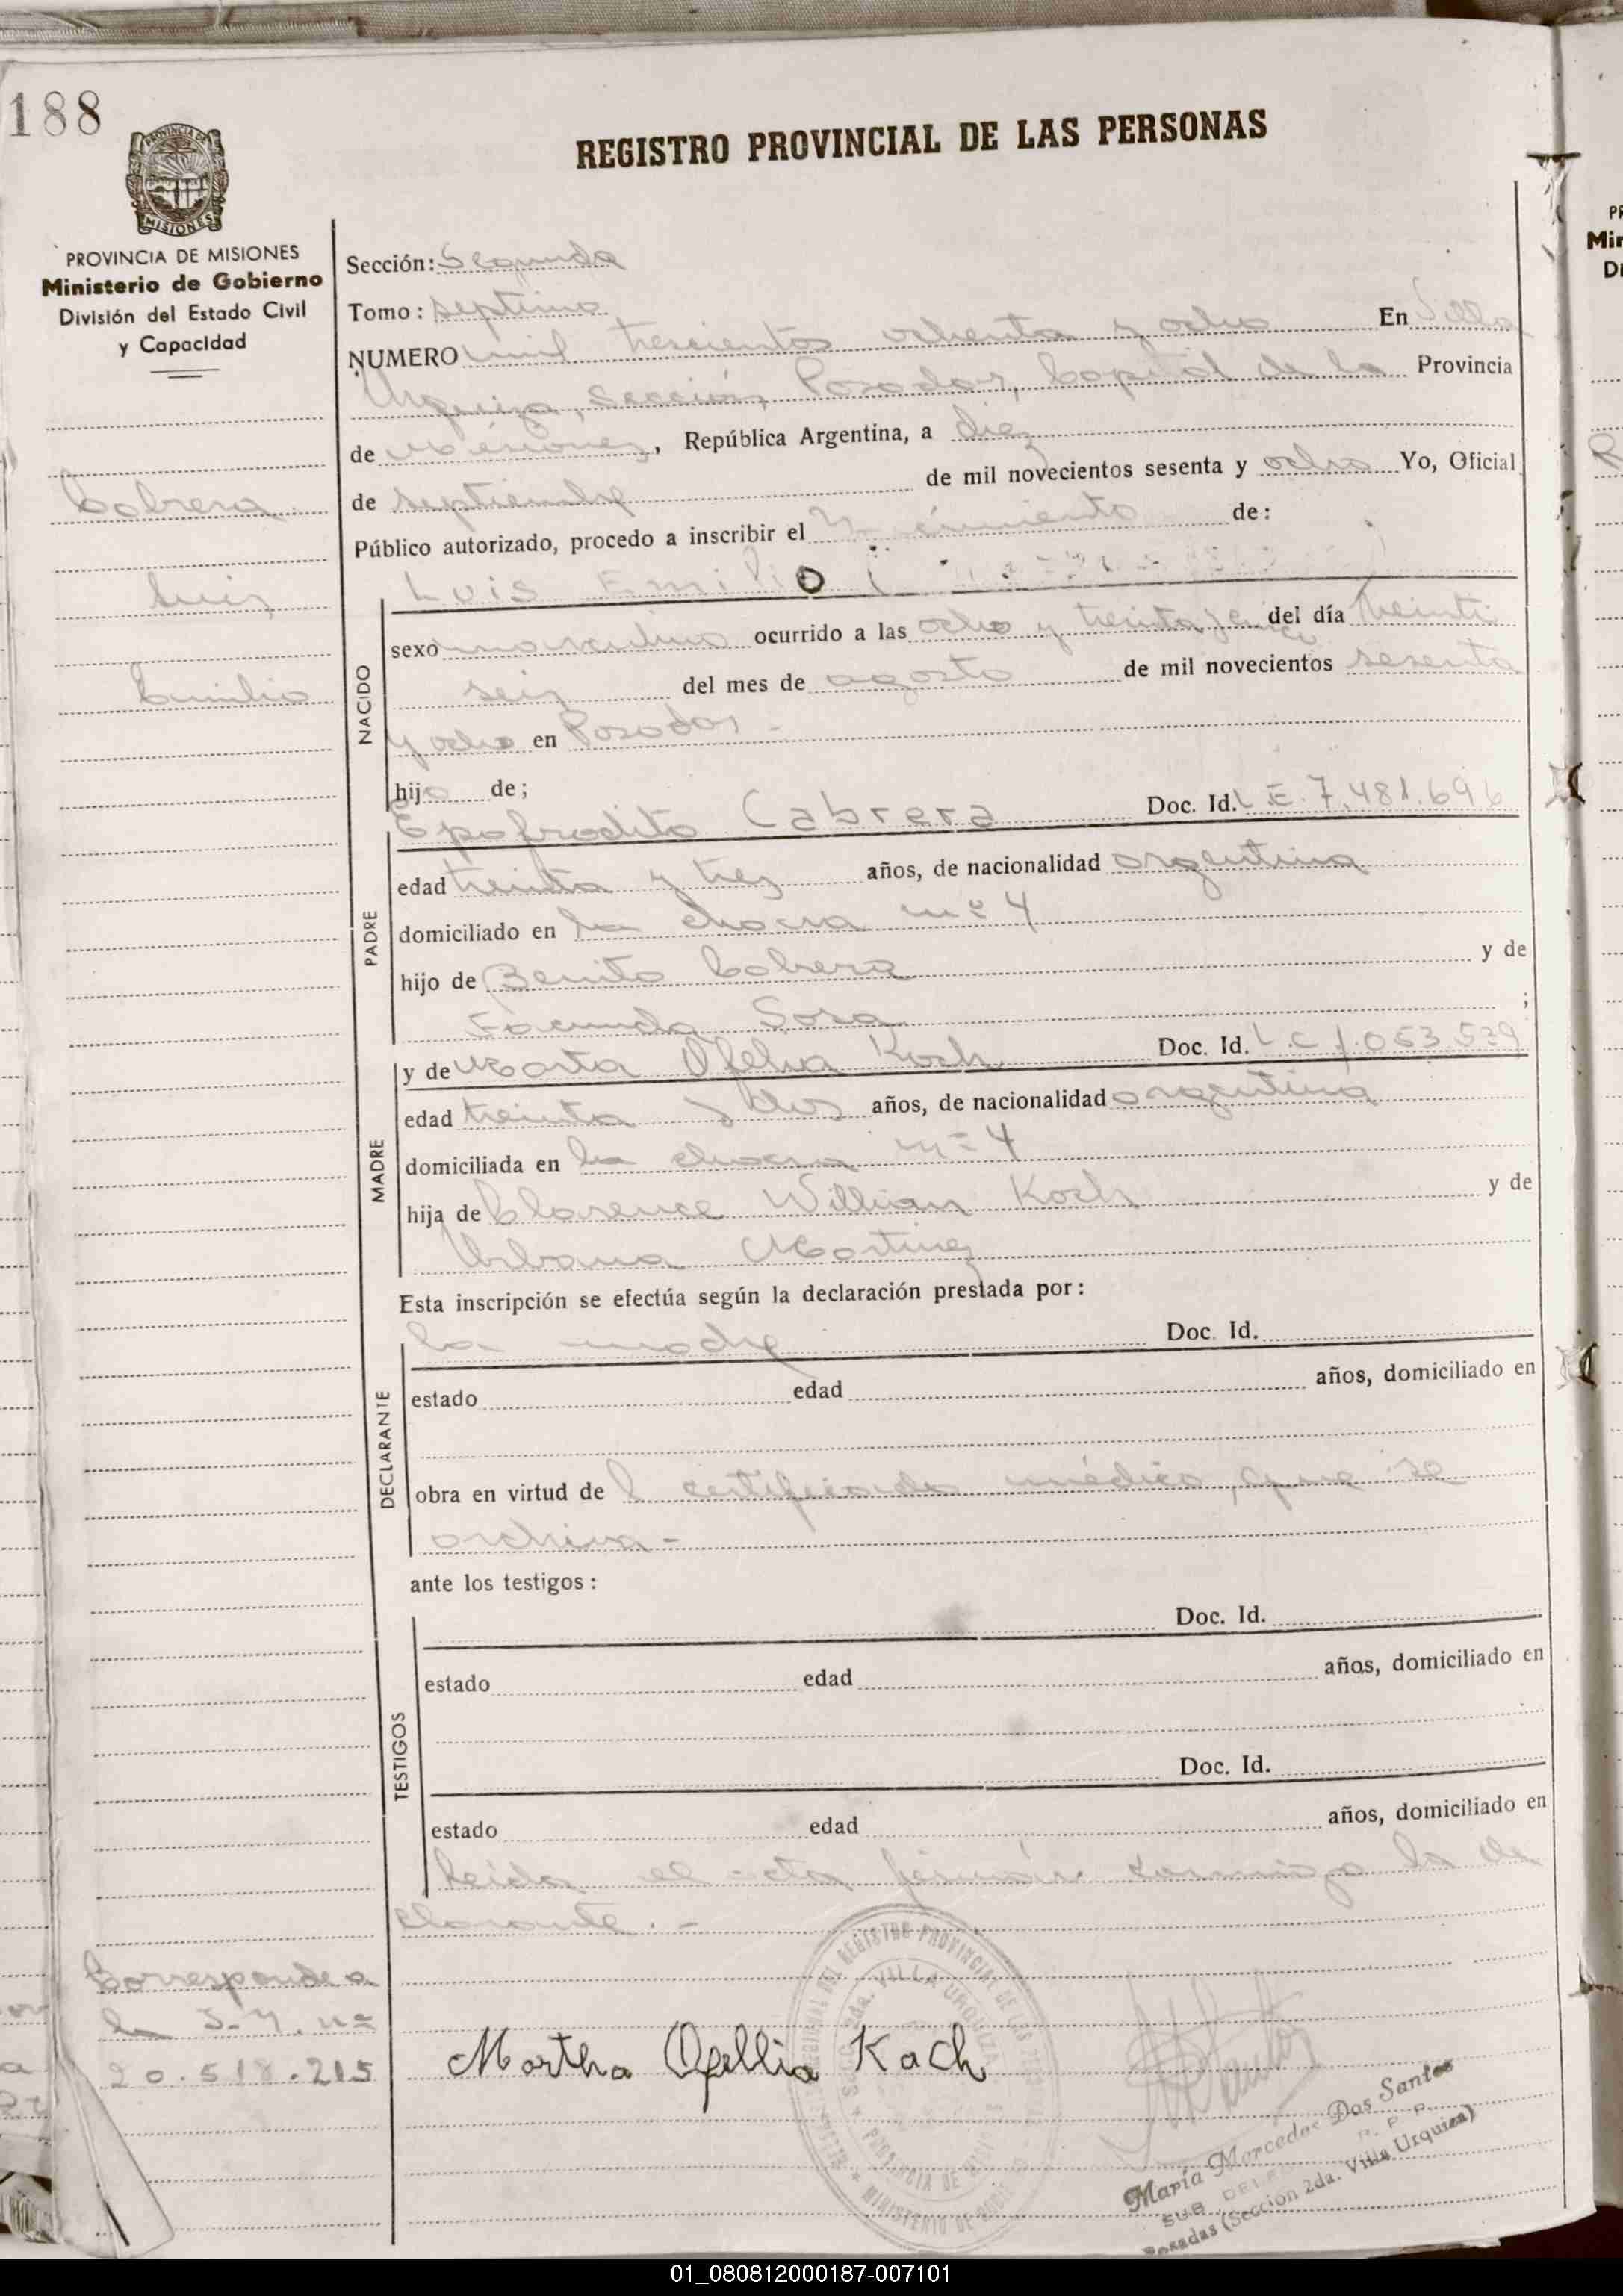 188
REGISTRO PROVINCIAL DE LAS PERSONAS
PROVINCIA DE MISIONES
PROVINCIA DE MISIONES
Ministerio de Gobierno
División del Estado Civil
y Capacidad
Cabrera
Luis
Emilio
Sección: Segunda
Tomo: septimo
NUMERO mil trescientos ochenta y ocho En Villa
Urquiza, Sección, Posadas, Capital de la Provincia
de Misiones, República Argentina, a diez
de septiembre de mil novecientos sesenta y ocho Yo, Oficial
Público autorizado, procedo a inscribir el Nacimiento de:
Luis Emilio
NACIDO
sexo masculino ocurrido a las ocho y treinta y cinco del día Veinti
seis del mes de agosto de mil novecientos sesenta
y ocho en Posadas -
hijo de;
PADRE
Epafrodito Cabrera Doc. Id. L.E. 7.481.696
edad treinta y tres años, de nacionalidad argentina
domiciliado en la chacra nº 4
hijo de Benito Cabrera y de
Facunda Sosa ;
MADRE
y de Marta Ofelia Koch Doc. Id. L.C 1.053.539
edad treinta y dos años, de nacionalidad argentina
domiciliada en la chacra nº 4
hija de Clarence Willian Koch y de
Urbana Martinez
Esta inscripción se efectúa según la declaración prestada por:
DECLARANTE
la madre Doc. Id.
estado edad años, domiciliado en
obra en virtud de l certificado médico, que se
archiva -
ante los testigos:
TESTIGOS
Doc. Id.
estado edad años, domiciliado en
Doc. Id.
estado edad años, domiciliado en
Leida el acta firman conmigo la de
clarante. -
Corresponde a
la nº
20.518.215
Martha Ofellia Kach
REGISTRO PROVINCIAL DE LAS
2da. VILLA URQUIZA
PROVINCIA DE
MINISTERIO DE
María Mercedes Dos Santos
SUB R. P. P.
Posadas (Sección 2da. Villa Urquiza)
PR
Min
Di
01_080812000187-007101